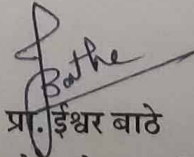 Bathe
प्रा. ईश्वर बाठे